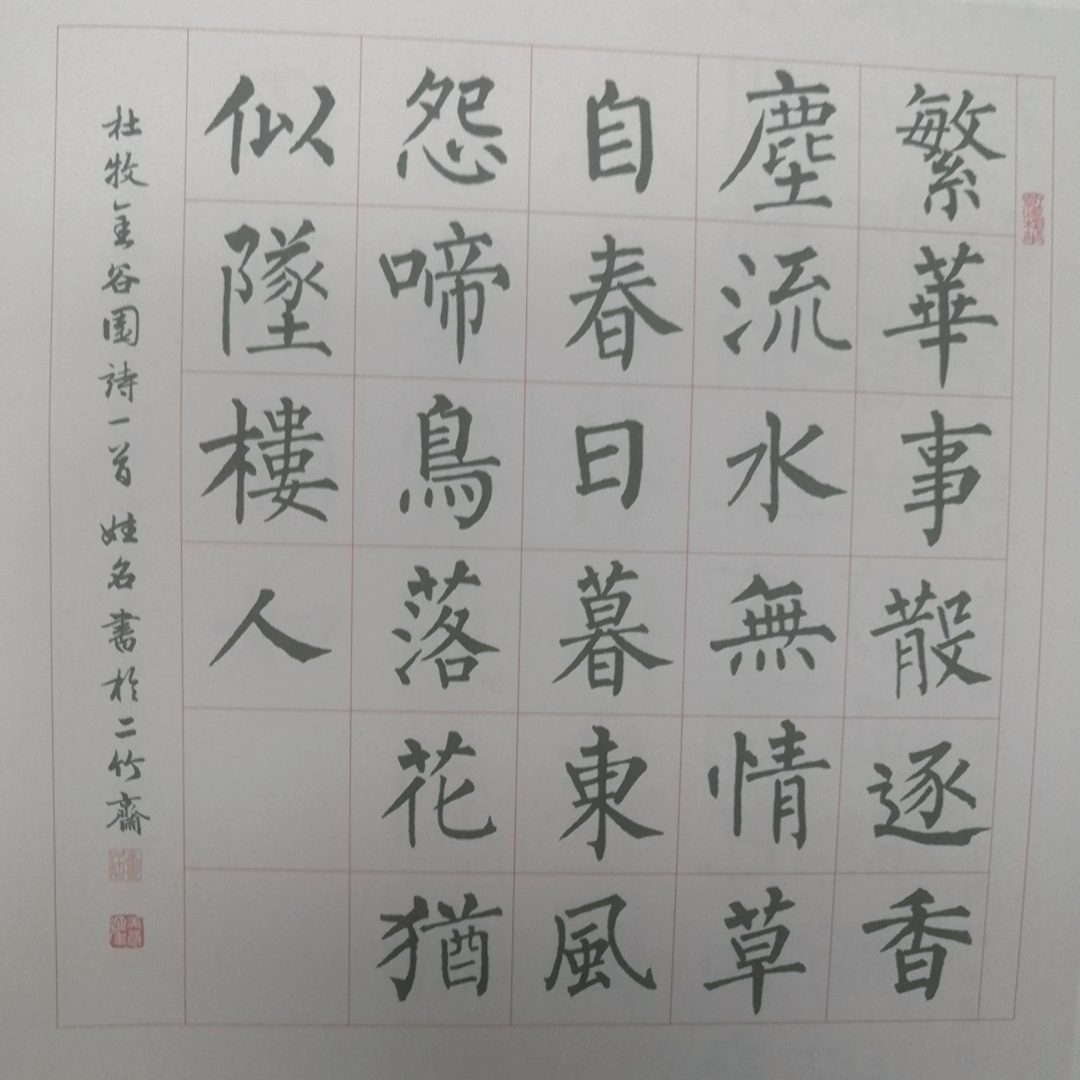 繁華事散逐香
塵流水無情草
自春日暮東風
怨啼鳥落花猶
似墜樓人
杜牧金谷園詩一首 姓名書於二竹齋